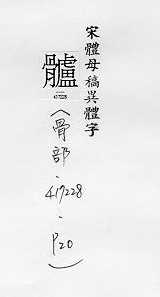 宋體母稿異體字
髗
417228
(骨部
-
417228
-
P20)